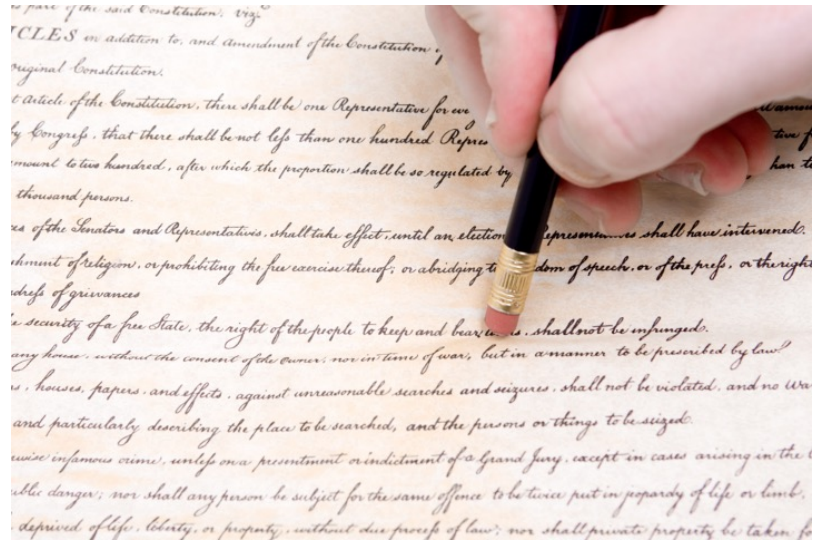 s part of the said Constitution, viz.
ICLES in addition to, and amendment of the Constitution
riginal Constitution.
t article of the Constitution, there shall be one Representative for eve
by Congreſs, that there shall be not leſs than one hundred Repres
amount to two hundred, after which the proportion shall be so regulated by han t
thousand persons.
es of the Senators and Representatives, shall take effect, until an election epresentatives shall have intervened.
shment of religion, or prohibiting the free exercise thereof, or abridging t dom of speech, or of the preſs, or the right
dreſs of grievances
e security of a free State, the right of the people to keep and bear s, shall not be infringed.
any house, without the consent of the owner, nor in time of war, but in a manner to be prescribed by law.
s, houses, papers, and effects, against unreasonable searches and seizures, shall not be violated, and no wa
and particularly describing the place to be searched, and the persons or things to be seized.
rwise infamous crime, unleſs on a presentment or indictment of a Grand Jury, except in cases arising in the
ublic danger; nor shall any person be subject for the same offence to be twice put in jeopardy of life or limb,
deprived of life, liberty, or property, without due proceſs of law; nor shall private property be taken fo